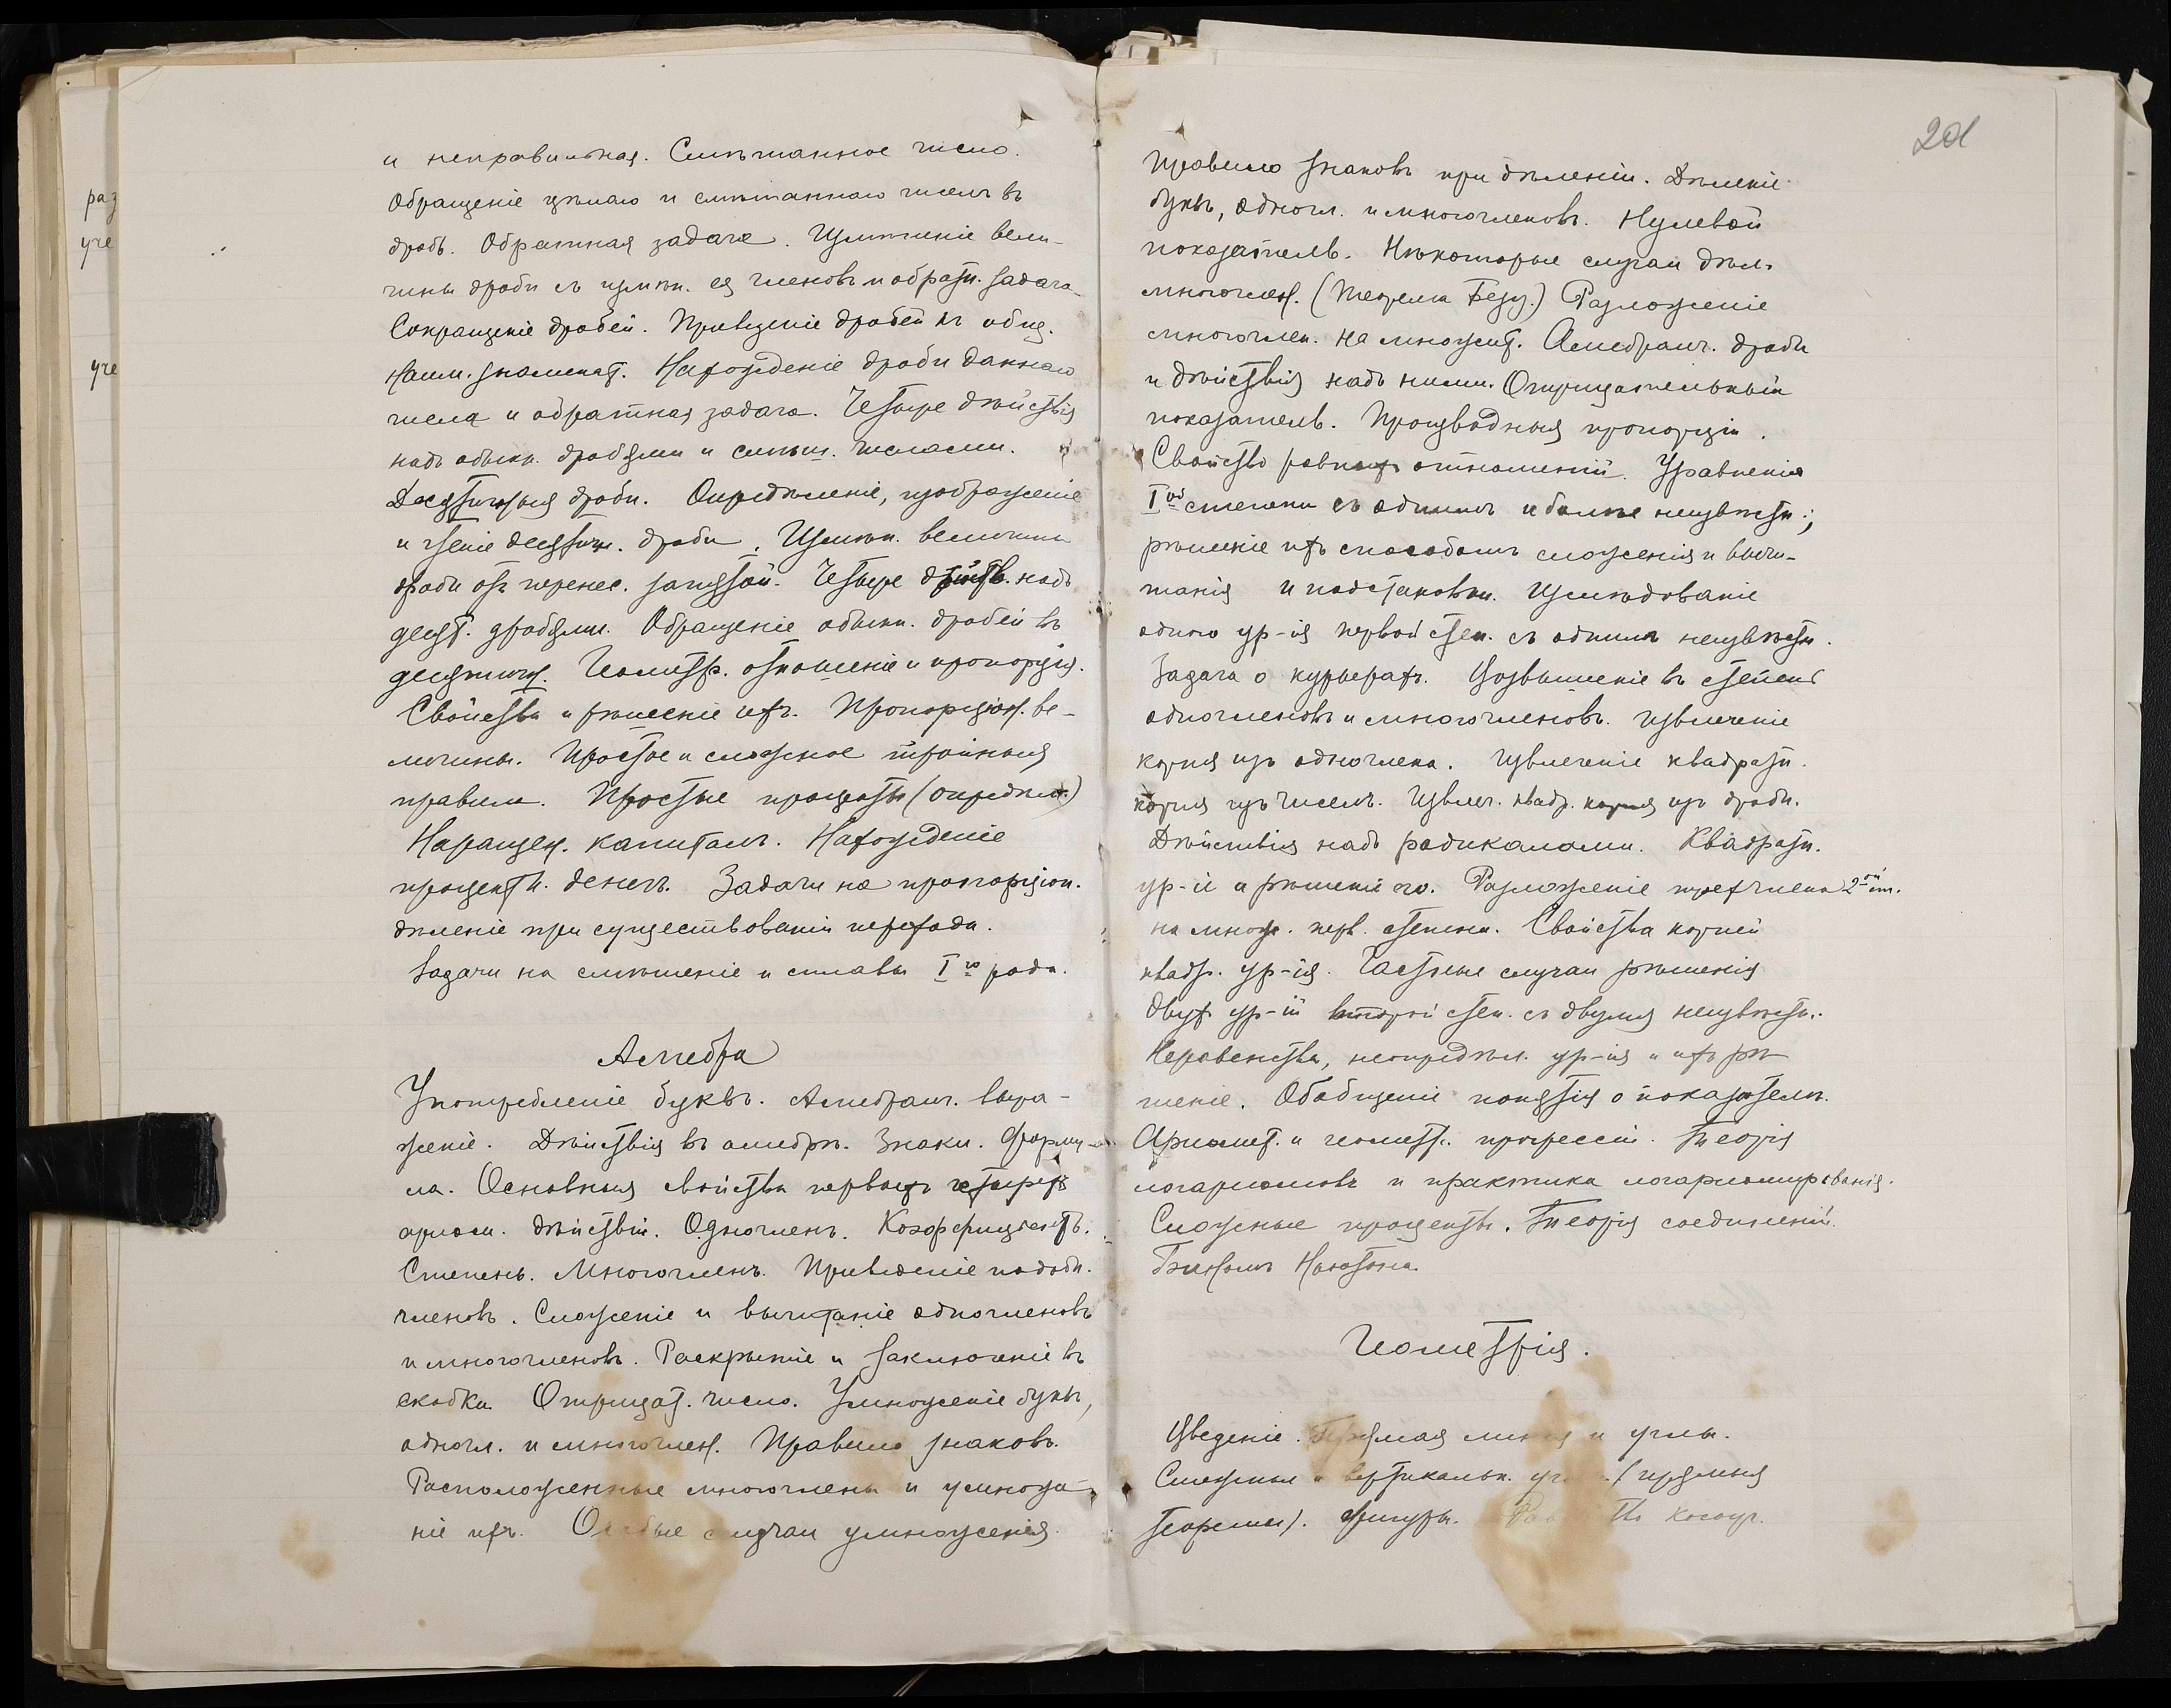 раз
уче
уче
и неправильная. Смѣшанное число.
Обращеніе цѣлаго и смѣшаннаго числъ въ
дробь. Обратная задача. Измѣненіе вели-
чины дроби съ измѣн. ея членовъ и обратн. задача.
Сокращеніе дробей. Приведеніе дробей къ общ.
наим. знаменат. Нахожденіе дроби даннаго
числа и обратная задача. Четыре дѣйствія
надъ обыкн. дробями и смѣш. числами.
Десятичныя дроби. Опредѣленіе, изображеніе
и чтеніе десятичн. дроби. Измѣн. величины
дроби отъ перенес. запятой. Четыре дѣйств. надъ
десят. дробями. Обращеніе обыкн. дробей въ
десятичн. Геометр. отношеніе и пропорція.
Свойства и рѣшеніе ихъ. Пропорціон. ве-
личины. Простое и сложное тройныя
правила. Простые проценты (опредѣл.)
Наращен. капиталъ. Нахожденіе
процентн. денегъ. Задачи на пропорціон.
дѣленіе при существованіи перехода.
Задачи на смѣшеніе и сплавы I го рода.
Алгебра
Употребленіе буквъ. Алгебраич. выра-
женіе. Дѣйствія въ алгебрѣ. Знаки. Форму-
ла. Основныя свойства первыхъ четырехъ
ариѳм. дѣйствій. Одночленъ. Коэффиціентъ.
Степень. Многочленъ. Приведеніе подобн.
членовъ. Сложеніе и вычитаніе одночленовъ
и многочленовъ. Раскрытіе и заключеніе въ
скобки. Отрицат. число. Умноженіе буквъ,
одночл. и многочлен. Правило знаковъ.
Расположенные многочлены и умноже-
ніе ихъ. Особые случаи умноженія.
201
Правило знаковъ при дѣленіи. Дѣленіе
буквъ, одночл. и многочленовъ. Нулевой
показатель. Нѣкоторые случаи дѣл.
многочлен. (Теорема Безу.) Разложеніе
многочлен. на множит. Алгебраич. дроби
и дѣйствія надъ ними. Отрицательный
показатель. Производныя пропорціи.
Свойство равныхъ отношеній. Уравненія
I ой степени съ однимъ и болѣе неизвѣстн.;
рѣшеніе ихъ способомъ сложенія и вычи-
танія и подстановки. Изслѣдованіе
одного ур-ія первой степ. съ однимъ неизвѣстн.
Задача о курьерахъ. Возвышеніе въ степень
одночленовъ и многочленовъ. Извлеченіе
корня изъ одночлена. Извлеченіе квадратн.
корня изъ чиселъ. Извлеч. квадр. корня изъ дроби.
Дѣйствія надъ радикалами. Квадратн.
ур-іе и рѣшеніе его. Разложеніе трехчлена 2 ой ст.
на множ. перв. степени. Свойства корней
квадр. ур-ія. Частные случаи рѣшенія
двухъ ур-ій второй степ. съ двумя неизвѣстн.
Неравенства, неопредѣл. ур-ія и ихъ рѣ-
шеніе. Обобщеніе понятія о показателѣ.
Ариѳмет. и геометр. прогрессіи. Теорія
логариѳмовъ и практика логариѳмированія.
Сложные проценты. Теорія соединеній.
Биномъ Ньютона.
Геометрія.
Введеніе. Прямая линія и углы.
Смежные и вертикальн. (прямыя
теоремы). Фигуры. косоуг.